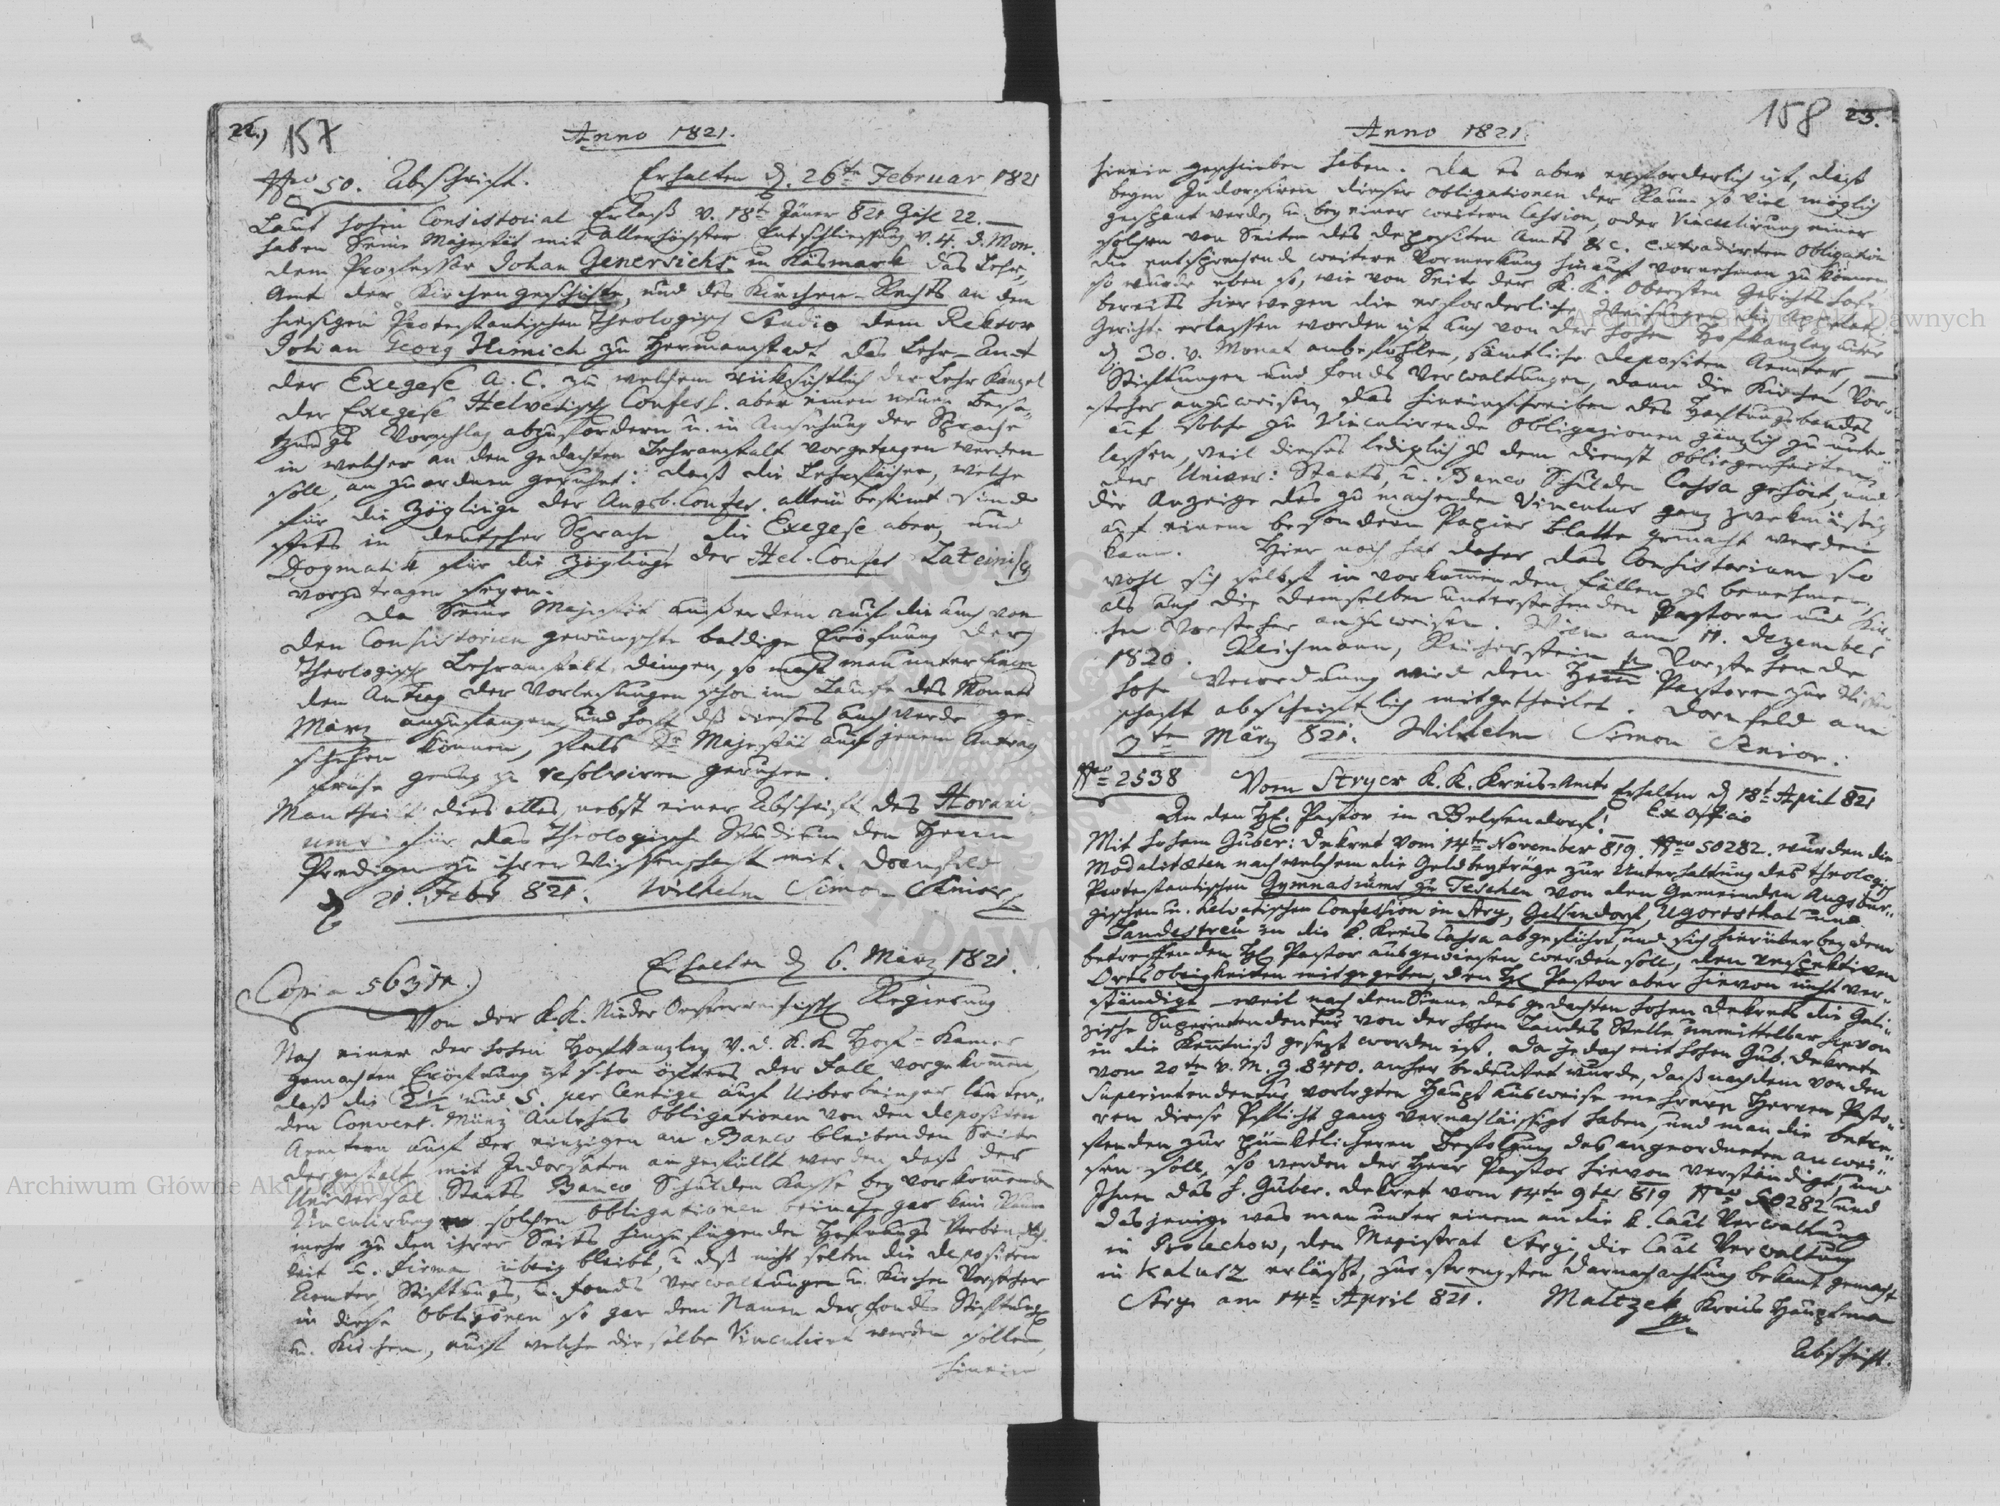 22.) 157
Anno 1821.
Nro 50. Abschrift. Erhalten d. 26te Februar 1821
Laut hohen Consistorial Erlaß v. 18t Jäner 821 Zahl 22. —
haben Seine Majestät mit Allerhöchster Entschliessung v. 4. d. Mon.
dem Professor Johan Genersichs in Käsmark das Lehr-
Amt der Kirchengeschichte, und des Kirchen-Rechts an dem
hiesigen Protestantischen Theologisch Studio dem Rektor
Johan Georg Himich zu Hermanstadt das Lehr-Amt
der Exegese A. C. zu welchem rüksichtlich der Lehr Kanzel
der Exegese Helvetisch Confess. aber einen neuen Besa-
tzungs Vorschlag abzufordern u. in Ansehung der Sprache
in welcher an den gedachten Lehranstalt vorgetragen werden
soll, an zu ordnen geruhet: daß die Lehrfächer, welche
für die Zöglinge der Augsb. Confes. allein bestimt sind
stets in deutscher Sprache, die Exegese aber, und
Dogmatik für die Zöglinge der Hel. Confes Lateinisch
vorzutragen seyen.
Da Seine Majestät außerdem auf die auch von
den Consistorien gewünschte baldige Eröfnung der
Theologisch Lehranstalt dringen, so macht man unter einem
den Antrag der Vorlesungen schon im Laufe des Monats
März anzufangen, und hoft daß dieses auch werde ge-
schehen können, falls Sr Majestät auf jenem Antrag
frühe genug zu resolviren geruhen.
Man theilt dies alles, nebst einer Abschrift des Horari
ums für das Theologische Studium den Herrn
Predigern zu ihrer Wissenschaft mit. Dornfeld
d 21. Febr 821. Wilhelm Simon Senior
Erhalten d 6. März 1821.
Copia 56371.)
Von der K.K. Nieder Oesterreichisch Regierung
Nach einer der hohen Hofkanzley v. d. K.K Hof-Kamer
gemachten Eröfnung ist schon öfters der Fall vorgekommen,
daß die 2 1/2 und 5. per Centige auf Ueberbringer lauten-
den Convent. Münz Anlehns Obligationen von den Depositen
Aemtern auf der einzigen an Banco bleibenden Seite
dergestalt mit Indorsaten angefüllt werden, daß der
Universal Staats Banco Schulden Kasse bey vorkommende
Vinculirung solchen Obligationen beinahe gar kein Raum
mehr zu den ihrer Seits hinzufügenden Haftungs Verbindlich-
keit u. Firma übrig bleibt, u. daß nicht selten die Depositen
Aemter, Stiftungs, u. Fonds Verwaltungen u. Kirchen Vorsteher
in diese Obligationen so gar dem Namen der Fonds Stiftung
u. Kirchen, auf welche dieselbe Vinculiret werden sollen,
hinein
158 23.
Anno 1821.
hinein geschrieben haben. Da es aber erforderlich ist, daß
beym Indorsiren dieser Obligationen der Raum so viel möglich
gespart werde, u. bey einer weitern Cession, oder Vinculirung einer
solchen von Seiten des Depositen Amts &c. extradirten Obligation
die entsprechende weitere Vormerkung hierauf vornehmen zu können,
so wurde eben so, wie von Seite der K.K. Obersten Gerichts hofe
bereits hierwegen die erforderliche Weisunge an die Appelat.
Gericht. erlassen worden ist auch von der hohen Hofkanzley unter
d 30. v. Monat anbefohlen, sämtliche Depositen Aemter —
Stiftungen und Fonds Verwaltungen, dann die Kirchen Vor-
steher anzuweisen, das Hineinschreiben des Haftungsbandes
auf solche zu Vinculirende Obligazionen gänzlich zu unter-
lassen, weil dieses lediglich zu dem Dienst Obliegenheiten
der Univer: Staats, u. Banco Schulden Cassa gehört, und
die Anzeige des zu machenden Vinculus ganz zwekmässig
auf einem besondern Papier Blatte gemacht werden
kann. Hier nach hat daher das Consistorium so
wohl sich selbst in vorkommenden Fällen zu benehmen,
als auch die demselben unterstehenden Pastoren und Kir-
chen Vorsteher anzuweisen. Wien am 11. Dezember
1820. Reichmann, Reicherstein Vorstehende
hohe Verordnung wird den Herrn Pastoren zur Wissen-
schaft abschriftlich mitgetheilet. Dornfeld am
2ten März 821. Wilhelm Simon Senior.
Nro 2538 Vom Stryer K.K. Kreis-Amte Erhalten d 18t April 821
An den H. Pastor in Gelsendorf! Ex Officio
Mit hohem Guber: Dekret vom 14te November 819. Nro 50282. wurden die
Modalitæten nach welchem die Geldbeyträge zur Unterhaltung des theologisch
Protestantischen Gymnasiums zu Teschen von den Gemeinden Augsbur-
gischen u. Helvetischen Confession in Stry, Gelsendorf, Ugartsthal und
Landestreu in die k. Kreis Cassa abgeführt, und sich hierüber bey dem
betreffenden H Pastor ausgewiesen werden soll, den respektiven
Orts obrigkeiten mitgegeben, den H. Pastor aber hievon nicht ver-
ständigt — weil nach dem Sinne des gedachten hohen Dekrets die Gali-
zische Superintendentur von der hohen Landes Stelle unmittelbar hievon
in die Kenntniß gesezt worden ist. Da jedoch mit hohen Gub. Dekrete
vom 20te v. M. Z. 8410. anher bedeutet wurde, daß nach dem von den
Superintendentur vorlegten Haupt Ausweise mehrere Herren Pasto-
ren diese Pflicht ganz vernachläissigt haben, und man die betre-
fenden zur pünktlicheren Befolgung des angeordneten anwei-
sen soll, so werden der Herr Pastor hievon verständigt, und
Ihnen das h. Guber. Dekret vom 14te 9ber 819 Nro 50282 und
das jenige was man unter einem an die k. Caāl Verwaltung
in Bolechow, den Magistrat Stry, die Caāl Verwaltung
in Kalusz erläßt, zur strengsten Darnachachtung bekant gemacht
Stry am 14te April 821. Maltzek Kreis Hauptman
Abschrift.
Archiwum Główne Akt Dawnych
Archiwum Główne Akt Dawnych